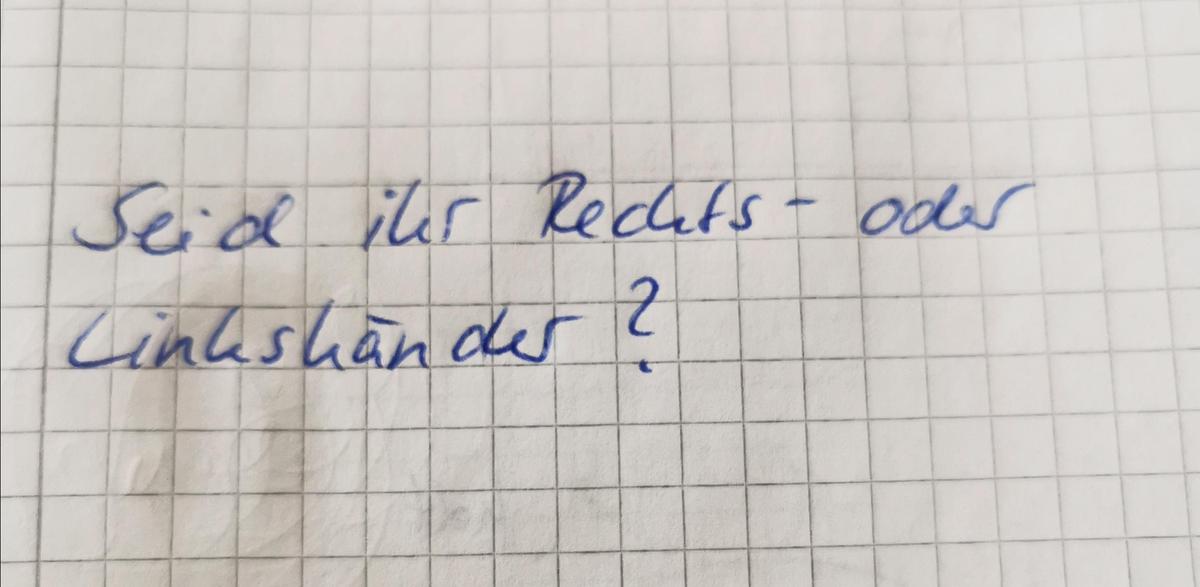 Seid ihr Rechts- oder
Linkshänder?